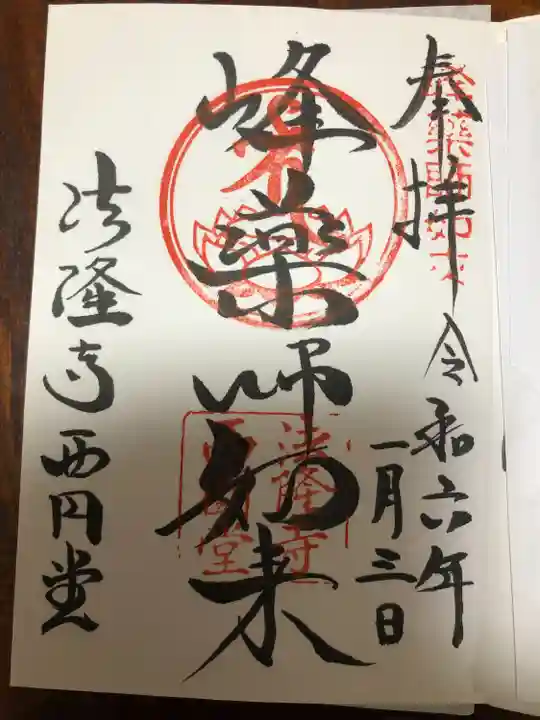 奉拝
令和六年
一月三日
峰薬師如来
法隆寺西円堂
峯薬師如来
法隆寺
西円堂